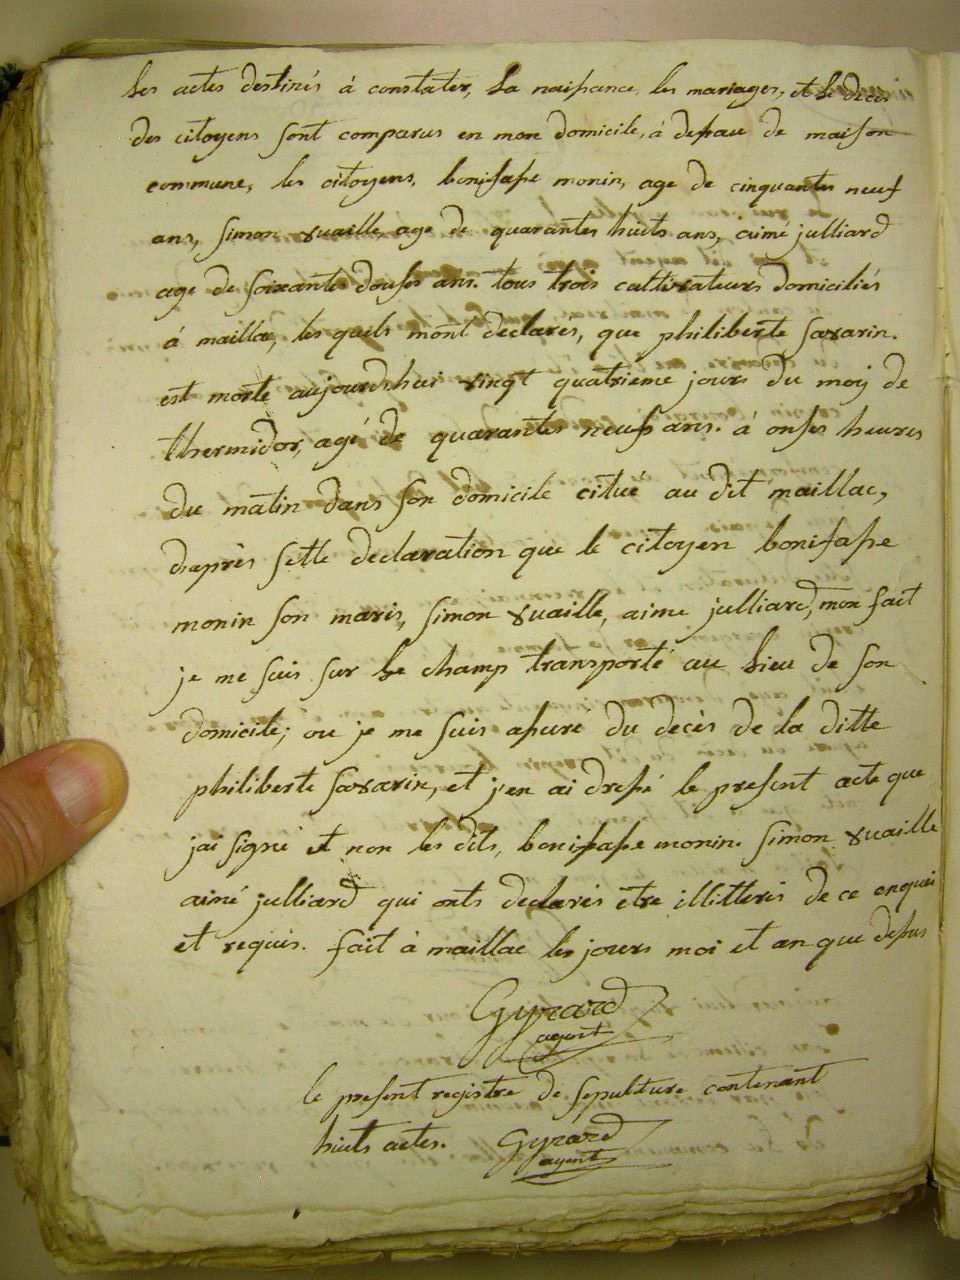 les actes destinés á constater, la naissance, les mariages, et le deces
des citoyens sont comparus en mon domicile, á defau de maison
commune, les citoyens, bonifasse monin, age de cinquantes neuf
ans, simon vuaille age de quarantes huits ans, aimé julliard
age de soixantes douses ans. tous trois cultivateurs domiciliés
á maillac, les quels mont declares, que philiberte savarin.
est morte aujourdshui vingt quatrieme jours du moij de
thermidor, agé de quarantes neufs ans. á onses heures
du matin dans son domicile citué au dit maillac,
daprès sette declaration que le citoyen bonifasse
monin son maris, simon vuaille, aimé julliard, mon fait
je me suis sur le champ transporté au lieu de son
domicile; ou je me suis assuré du decès de la ditte
philiberte savarin, et j'en ai dressé le present acte que
jai signé et non les dits, bonifasse monin. simon vuaille
aimé julliard qui onts declarés etre illitterés de ce enquis
et requis. fait á maillac les jours moi et an que desus
Gyrard
agent
le present registre de sepulture contenant
huits actes. Gyrard
agent